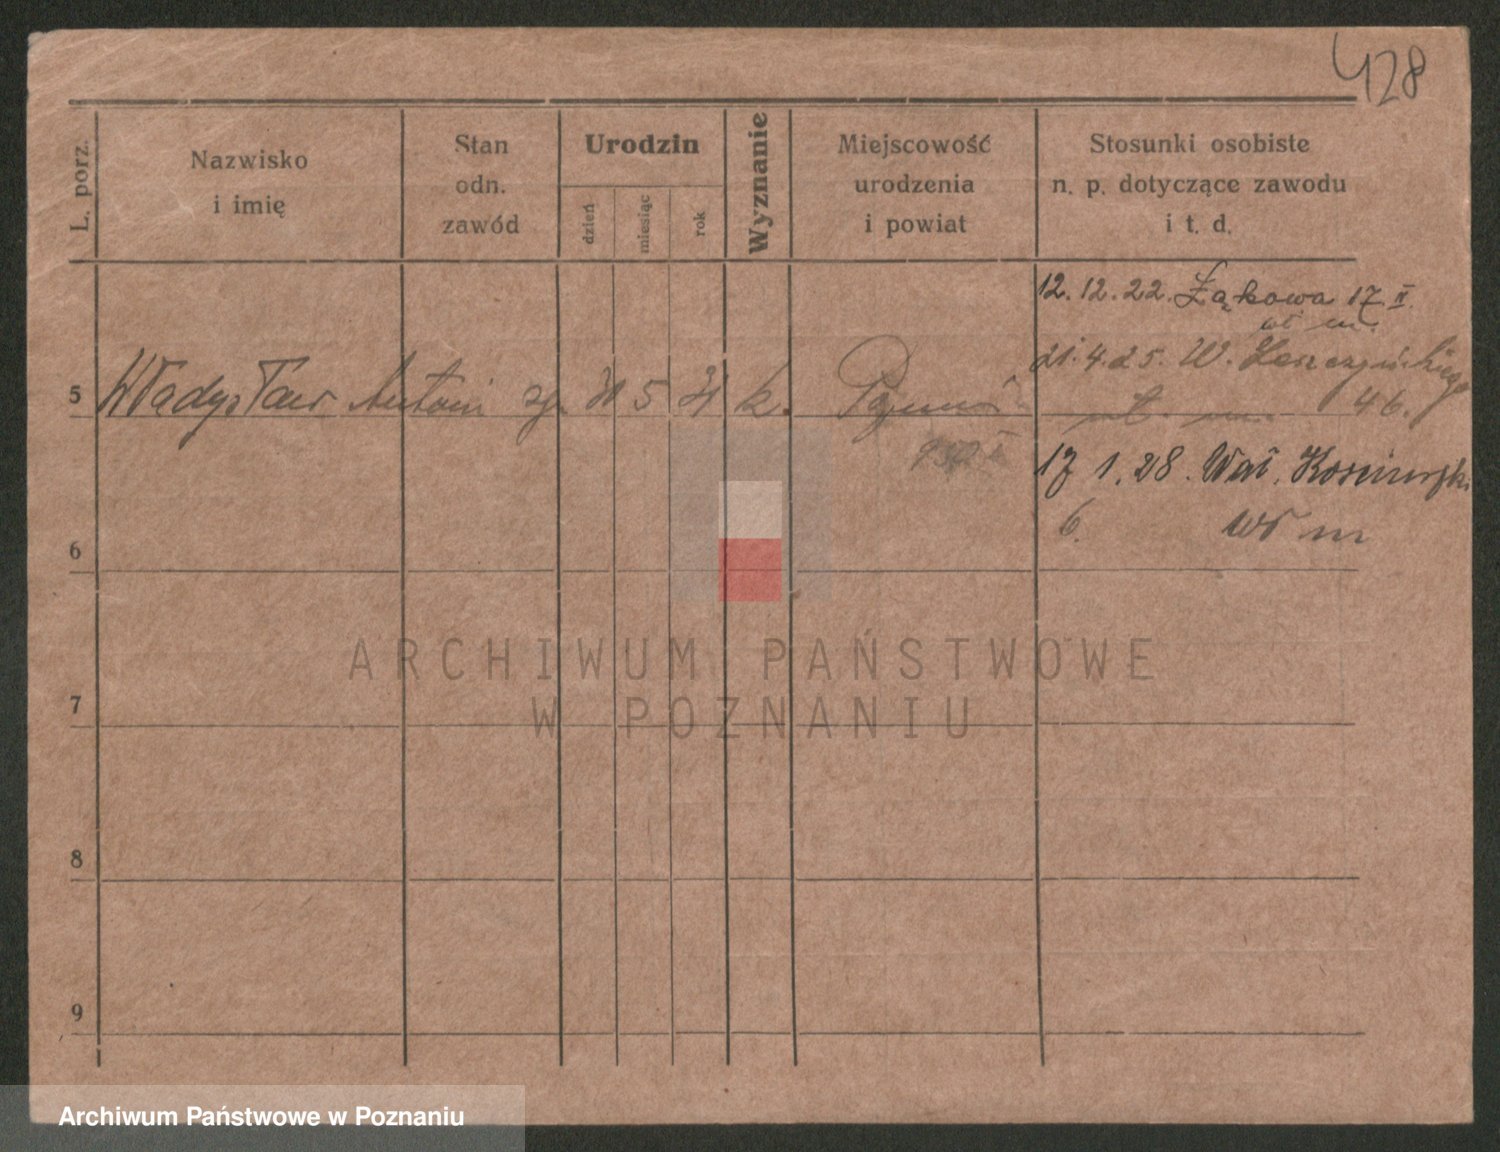 428
L. porz.
Nazwisko
i imię
Stan
odn.
zawód
Urodzin
dzień
miesiąc
rok
Wyznanie
Miejscowość
urodzenia
i powiat
Stosunki osobiste
n. p. dotyczące zawodu
i t. d.
12. 12. 22. Łąkowa 17. II.
wł m.
21. 4. 25. W. Leszczyńskiego
5 Władysław Antoni 5 k. Poznań 46.
17 1. 28. Wał. Kościuszki
6. wł m
6
ARCHIWUM PAŃSTWOWE
W POZNANIU
7
8
9
Archiwum Państwowe w Poznaniu